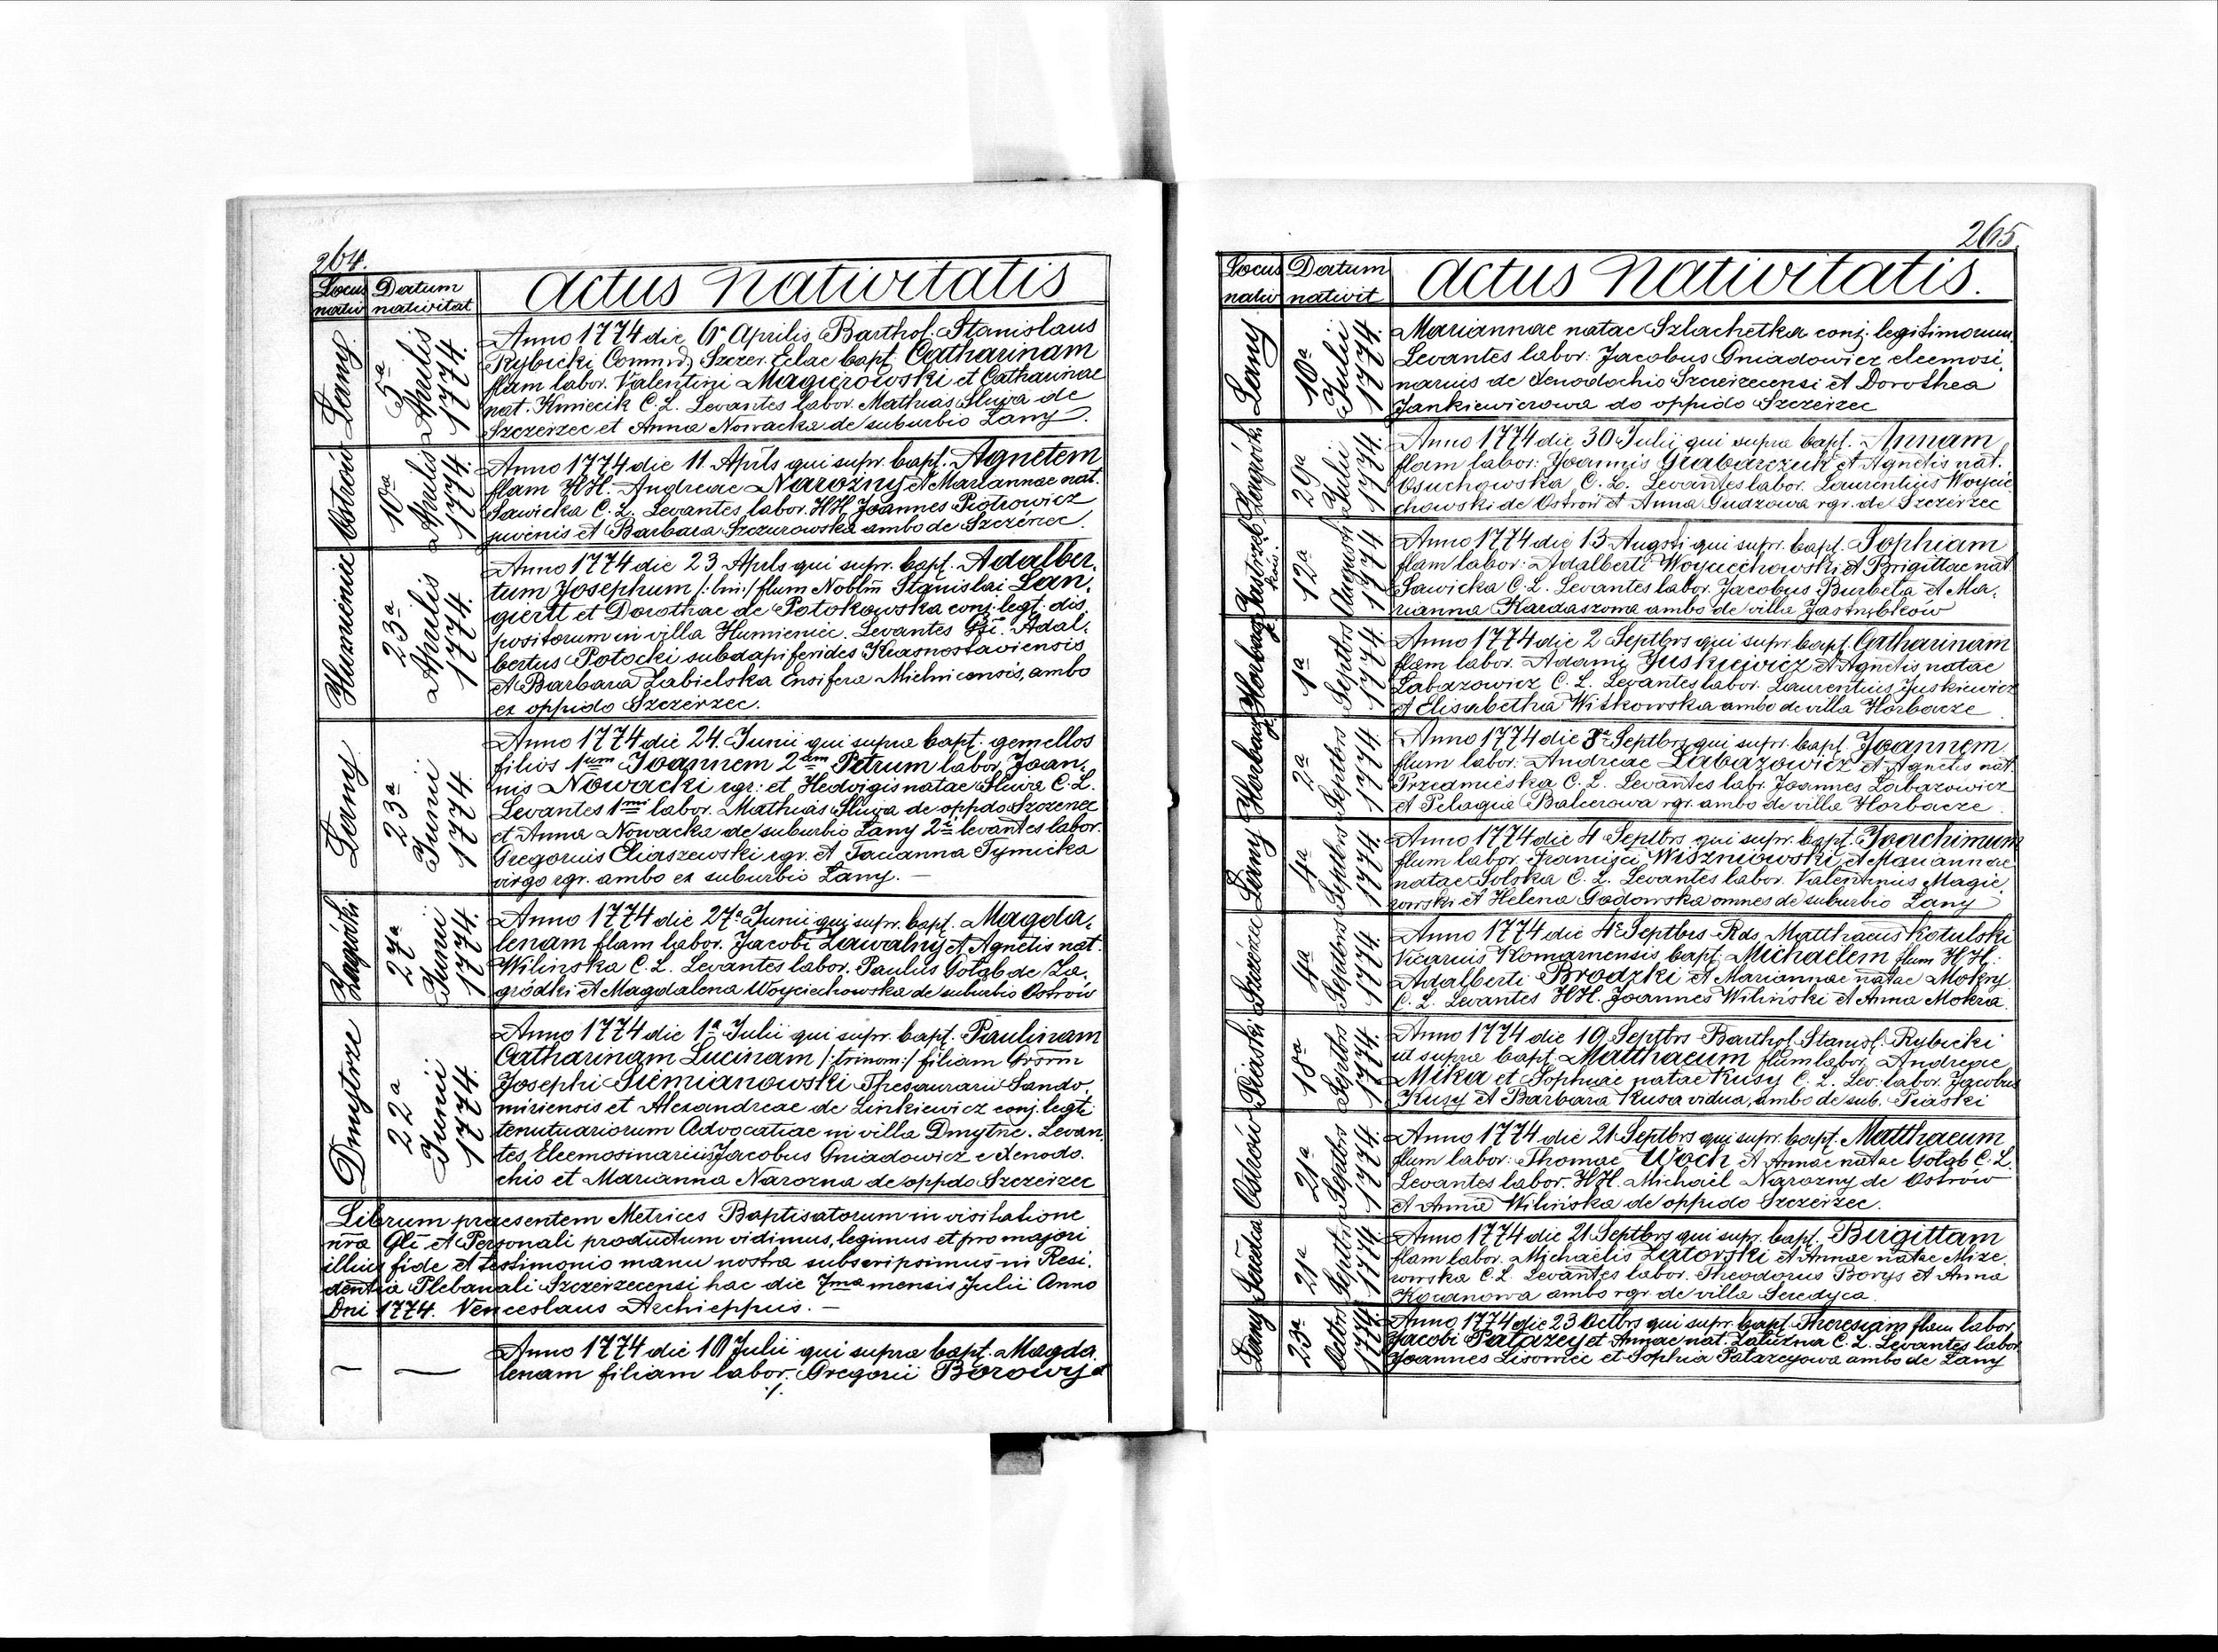 264.
Locus nativ
Datum nativitat
Actus Nativitatis
Łany
5a Aprilis 1774.
Anno 1774 die 6a Aprilis Barthol. Stanislaus
Rybicki Szczer. Eclae bapt. Catharinam
flam labor. Valentini Magierowski et Catharinae
nat. Kmiecik C. L. Levantes labor. Mathias Sluwa de
Szczerzec et Anna Nowacka de suburbio Łany.
Ostrów
10a Aprilis 1774.
Anno 1774 die 11. Aprls qui supr. bapt. Agnetem
flam HH. Andreae Narożny et Mariannae nat.
Sawicka C. L. Levantes labor. HH. Joannes Piotrowicz
juvenis et Barbara Szczurowska ambo de Szczerzec.
Humieniec
23a Aprilis 1774.
Anno 1774 die 23 Aprls qui supr. bapt. Adalber,
tum Josephum /:bin:/ flum Noblm Stanislai Lan,
giertt et Dorothae de Potokowska conj. legt. dis,
positorum in villa Humieniec. Levantes Gsi. Adal,
bertus Potocki subdapiferides Krasnostaviensis
et Barbara Zabielska Ensifera Mielnicensis, ambo
ex oppido Szczerzec.
Łany
23a Junii 1774.
Anno 1774 die 24. Junii qui supra bapt. gemellos
filios 1um Joannem 2um Petrum labor. Joan,
nis Nowacki rgr: et Hedvigis natae Sluwa C. L.
Levantes 1mi labor. Mathias Sluwa de oppdo Szczerzec
et Anna Nowacka de suburbio Łany 2i levantes labor.
Gregorius Eliaszewski rgr. et Tacianna Tymicka
virgo rgr. ambo ex suburbio Łany. —
Zagródki
27a Junii 1774.
Anno 1774 die 27a Junii qui supr. bapt. Magda,
lenam flam labor. Jacobi Zawalny et Agnetis nat.
Wilinska C. L. Levantes labor. Paulus Gołąb de Za,
gródki et Magdalena Woyciechowska de suburbio Ostrów
Dmytrze
22a Junii 1774.
Anno 1774 die 1a Julii qui supr. bapt. Paulinam
Catharinam Lucinam /:trinom:/ filiam Gromm
Josephi Siemianowski Thesaurarii Sando,
miriensis et Alexandreae de Linkiewicz conj. legt.
tenutuariorum Advocatiae in villa Dmytrze. Levan,
tes Eleemosinarius Jacobus Gniadowicz e Xenodo,
chio et Marianna Narozna de oppdo Szczerzec
Librum praesentem Metrices Baptisatorum in visitatione
nra Gli et Personali productum vidimus, legimus et pro majori
illius fide et testimonio manu nostra subscripsimus in Resi,
dentia Plebanali Szczerzecensi hac die 7ma mensis Julii Anno
Dni 1774. Venceslaus Archieppus. —
— —
Anno 1774 die 10 Julii qui supra bapt. Magda,
lenam filiam labor. Gregorii Borowy et
./.
265.
Locus nativ
Datum nativit
Actus Nativitatis.
Łany
10a Julii 1774.
Mariannae natae Szlachetka conj. legitimorum
Levantes labor: Jacobus Gniadowicz eleemosi,
narius de Xenodochio Szczerzecensi et Dorothea
Jankiewiczowa do oppido Szczerzec
Zagródk
29a Julii 1774.
Anno 1774 die 30 Julii qui supra bapt. Annam
flam labor: Joannis Grabarczuk et Agnetis nat.
Osuchowska C. L. Levantes labor. Laurentius Woycie
chowski de Ostrow et Anna Gudzowa rgr. de Szczerzec
12a Augusti 1774
Anno 1774 die 13 Augsti qui supr. bapt. Sophiam
flam labor: Adalberti Woyciechowski et Brigittae nat
Sawicka C. L. Levantes labor. Jacobus Burbela et Ma,
rianna Kardaszowa ambo de villa Jastrzębków
Horbacze
1a Septbrs 1774.
Anno 1774 die 2 Septbrs qui supr. bapt. Catharinam
flam labor. Adami Juskiewicz et Agnetis natae
Łabazowicz C. L. Levantes labor. Laurentius Juskiewicz
et Elisabetha Witkowska ambo de villa Horbacze
Horbacz
2a Septbrs 1774.
Anno 1774 die 3a Septbrs qui supr. bapt. Joannem
flum labor: Andreae Łabazowicz et Agnetis nat.
Przedmieska C. L. Levantes labr. Joannes Łabazowicz
et Pelagia Balcerowa rgr. ambo de villa Horbacze.
Łany
4a Septbrs 1774.
Anno 1774 die 4 Septbrs qui supr. bapt. Joachimum
flum labor. Francisci Wiszniowski et Mariannae
natae Solska C. L. Levantes labor. Valentinus Magie,
rowski et Helena Godowska omnes de suburbio Łany
Szczerzec
4a Septbrs 1774.
Anno 1774 die 4a Septbrs Rds Matthaeus Kotulski
Vicarius Komarnensis bapt. Michaelem flum HH:
Adalberti Brodzki et Mariannae natae Mokry
C. L. Levantes HH. Joannes Wiliński et Anna Mokra.
Piaski
18a Septbrs 1774.
Anno 1774 die 19 Septbrs Barthol. Stanisl. Rybicki
ut supra bapt. Matthaeum flum labor. Andreae
Mika et Sophiae natae Kusy C. L. Lev: labor. Jacobus
Kusy et Barbara Kusa vidua, ambo de sub. Piaski
Ostrów
21a Septbrs 1774.
Anno 1774 die 21 Septbrs qui supr. bapt. Matthaeum
flum labor: Thomae Woch et Annae natae Gołąb C. L.
Levantes labor. HH. Michaël Narozny de Ostrów
et Anna Wilińska de oppido Szczerzec.
21a Septbr 1774
Anno 1774 die 21 Septbrs qui supr. bapt. Birgittam
flam labor. Michaëlis Zlatorski et Annae natae Mize,
rowska C. L. Levantes labor. Theodorus Borys et Anna
Kocanowa ambo rgr. de villa Seredyca.
Łany
23a Octbrs 1774.
Anno 1774 die 23 Octbrs qui supr. bapt. Theresiam flam labor.
Jacobi Patazey et Annae nat. Załuzna C. L. Levantes labor
Joannes Lisowiec et Sophia Patazeyowa ambo de Łany